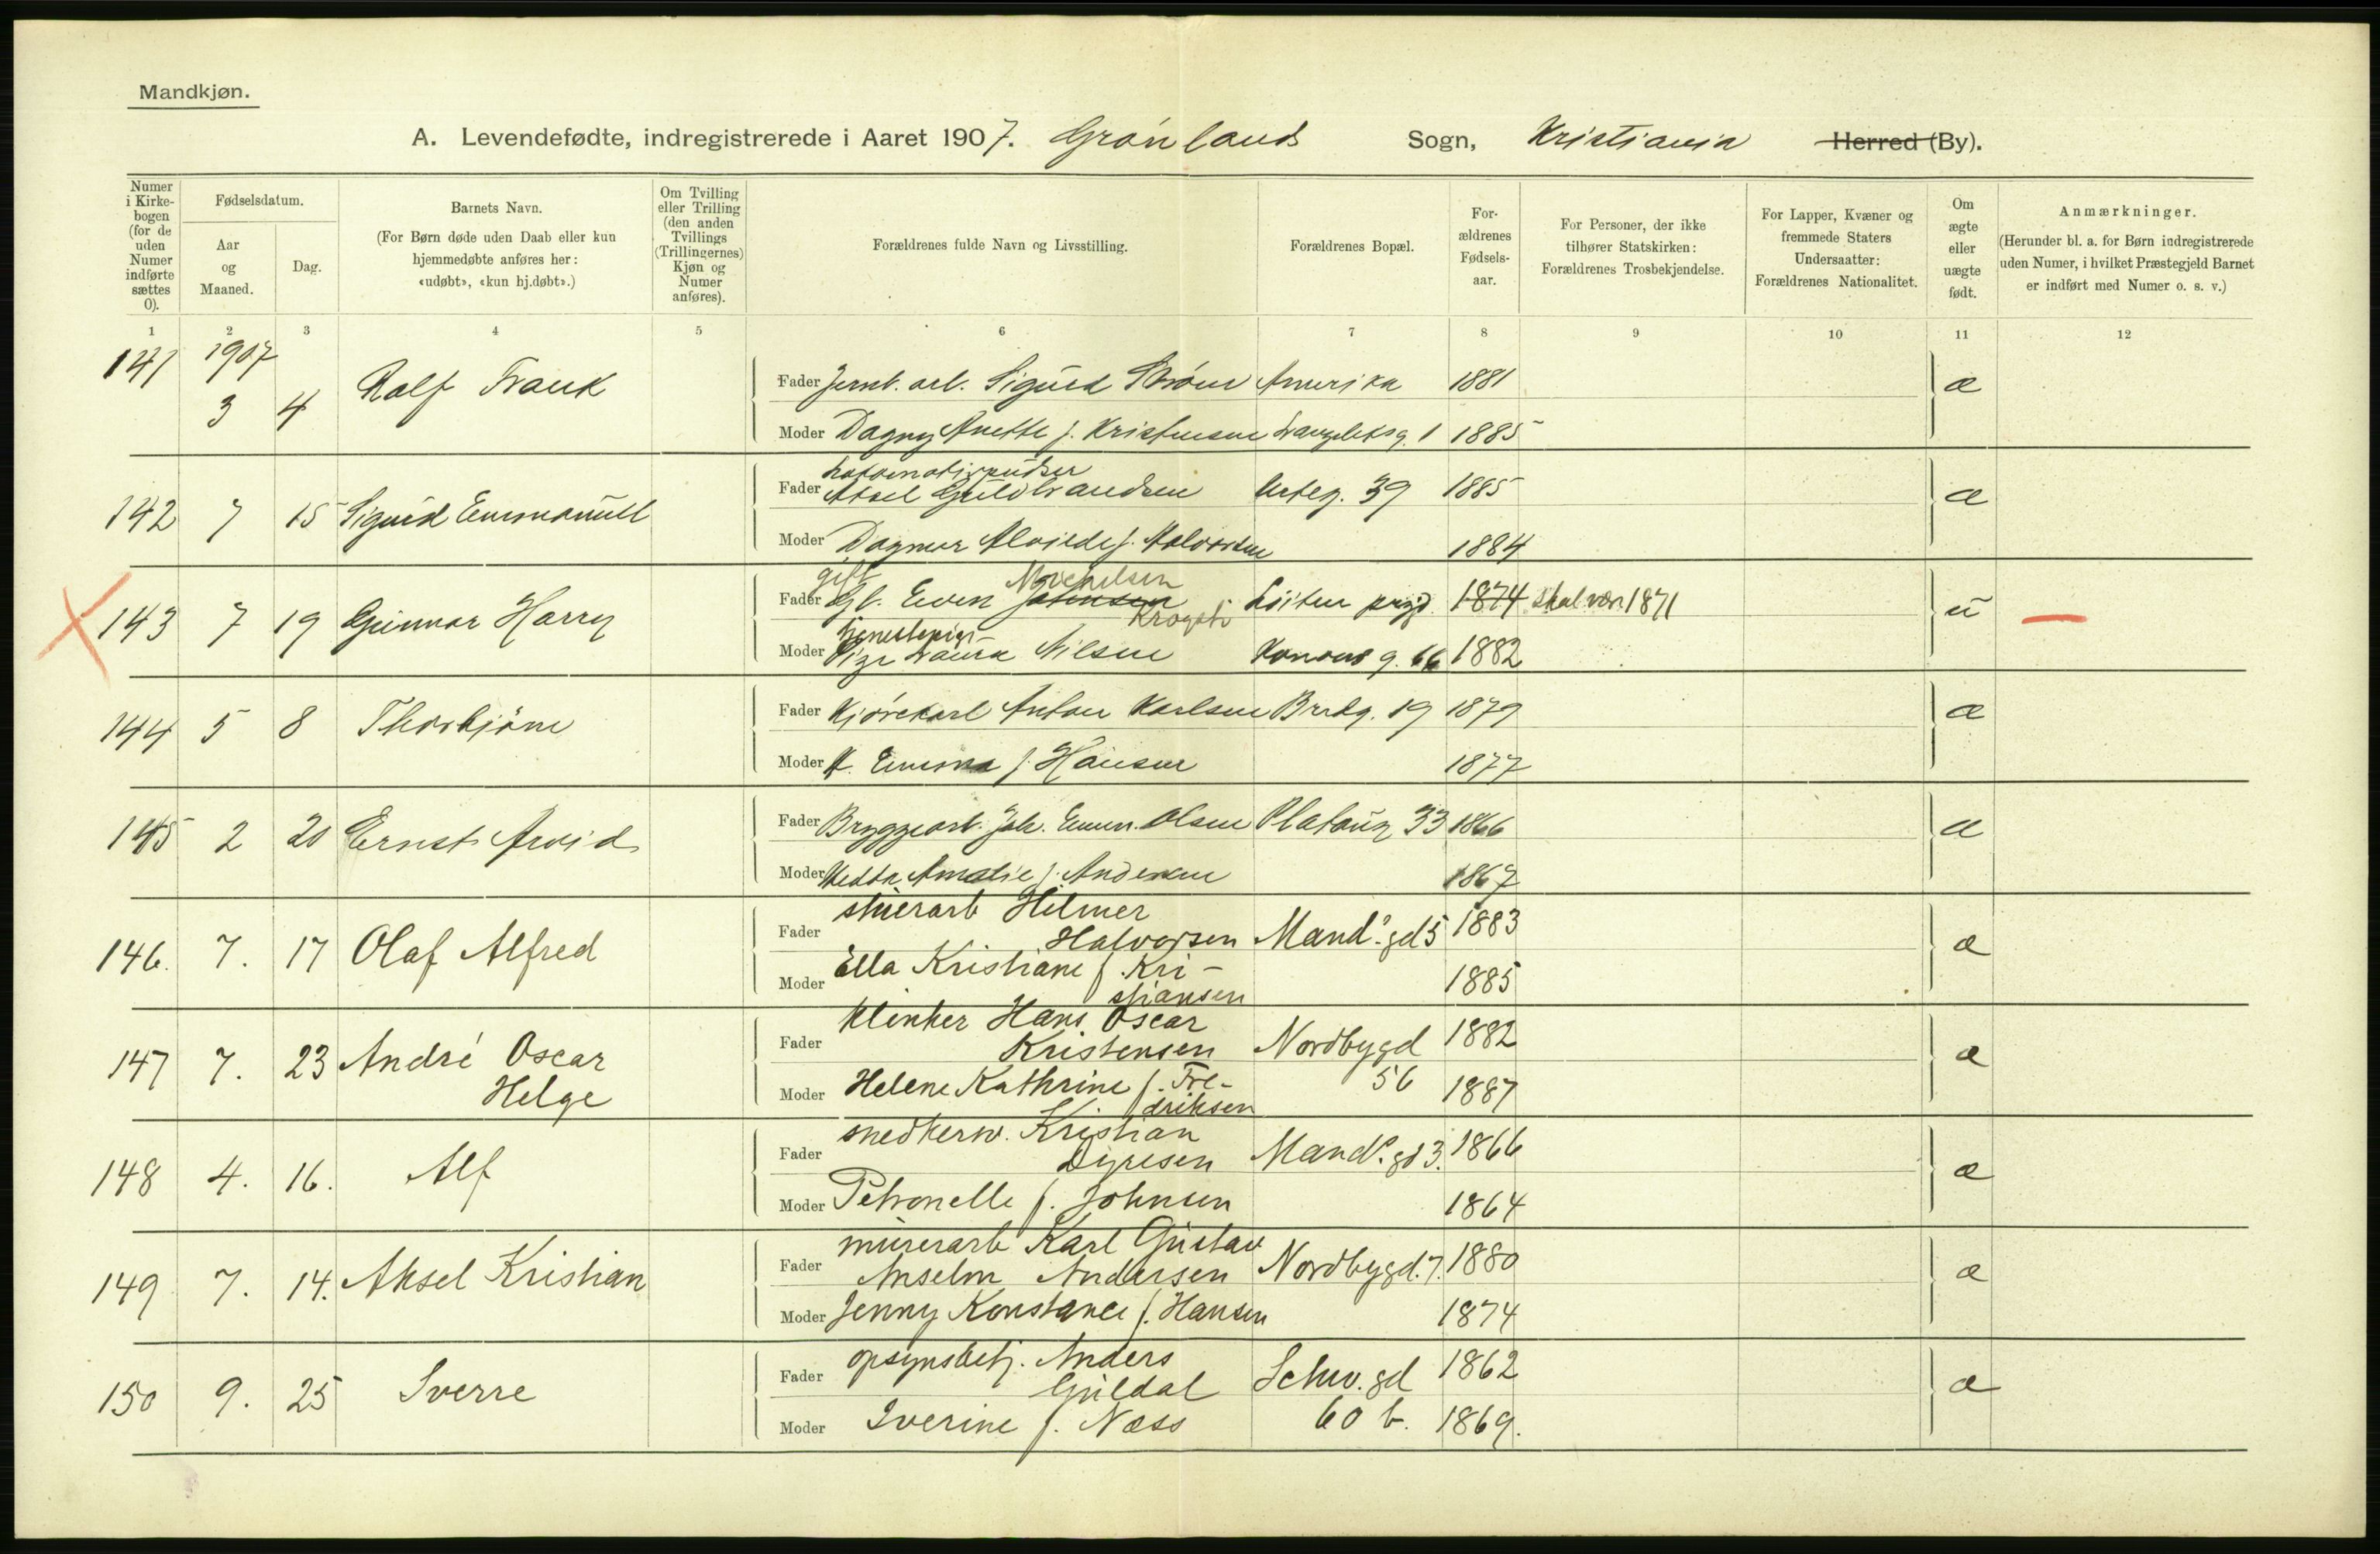 Mandkjøn.
A. Levendefødte, indregistrerede i Aaret 1907. Grønlands Sogn, Kristiania Herred (By).
Numer i Kirkebogen (for de uden Numer indførte sættes 0).
Fødselsdatum.
Aar og Maaned.
Dag.
Barnets Navn.
(For Børn døde uden Daab eller kun hjemmedøbte anføres her: «udøbt», «kun hj.døbt».)
Om Tvilling eller Trilling (den anden Tvillings (Trillingernes) Kjøn og Numer anføres).
Forældrenes fulde Navn og Livsstilling.
Forældrenes Bopæl.
Forældrenes Fødselsaar.
For Personer, der ikke tilhører Statskirken: Forældrenes Trosbekjendelse.
For Lapper, Kvæner og fremmede Staters Undersaatter: Forældrenes Nationalitet.
Om ægte eller uægte født.
Anmærkninger.
(Herunder bl. a. for Børn indregistrerede uden Numer, i hvilket Præstegjeld Barnet er indført med Numer o. s. v.)
1 2 3 4 5 6 7 8 9 10 11 12
1907
141 3 4 Ralf Frank
Fader Jernb. arb. Sigurd Strøm Amerika 1881 æ
Moder Dagny Anette f. Kristensen 1 1885
142 7 15 Sigurd Emmanuell
Fader Lokomotivpudser
Aksel Guldbrandsen Urteg. 39 1885 æ
Moder Dagmar Alvilde f. Halvorsen 1884
143 7 19 Gunnar Harry
gift Michelsen
Fader Even Johnsen 1874 skal være 1871 u
Krogst
tjenestepige
Moder Laura Nilsen g. 66 1882
144 5 8 Thorbjørn
Fader Kjørekarl Anton Karlsen 19 1879 æ
Moder Emma f. Hansen 1877
145 2 20 Ernst Arvid
Fader Bryggearb. Joh. Emm. Olsen Platoug 33 1866 æ
Moder Hedda Amalie f. Andersen 1867
146. 7. 17 Olaf Alfred
Fader stuerarb Hilmer
Halvorsen Mands.gd 5 1883 æ
Moder Ella Kristiane f. Kri-
stiansen 1885
147 7. 23 André Oscar
Helge
Fader klinker Hans Oscar
Kristensen Nordbygd 1882 æ
56
Moder Helene Kathrine f. Fre-
driksen 1887
148 4. 16. Alf
Fader snedkersv. Kristian
Dyresen Mands.gd 3. 1866 æ
Moder Petronelle f. Johnsen 1864
149 7. 14. Aksel Kristian
Fader murerarb Karl Gustav
Anselm Andersen Nordbygd. 7. 1880 æ
Moder Jenny Konstance f. Hansen 1874
150 9. 25 Sverre
Fader opsynsbetj. Anders
Guldal Schw.gd 1862 æ
Moder Iverine f. Næss 60 b. 1869.